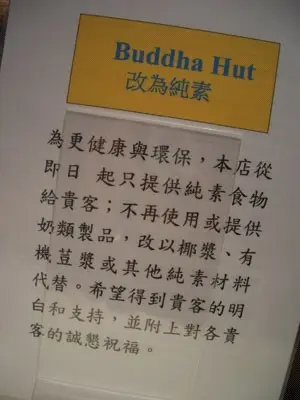 Buddha Hut
改為純素
為更健康與環保，本店從
即日 起只提供純素食物
給貴客；不再使用或提供
奶類製品，改以椰漿、有
機荳漿或其他純素材料
代替。希望得到貴客的明
白和支持，並附上對各貴
客的誠懇祝福。